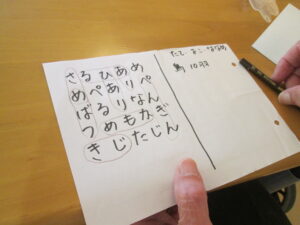 さるひあめ
めぺありぺ
ばるりなん
つめもかぎ
きじたじん
たて よこ ななめ
鳥 10羽